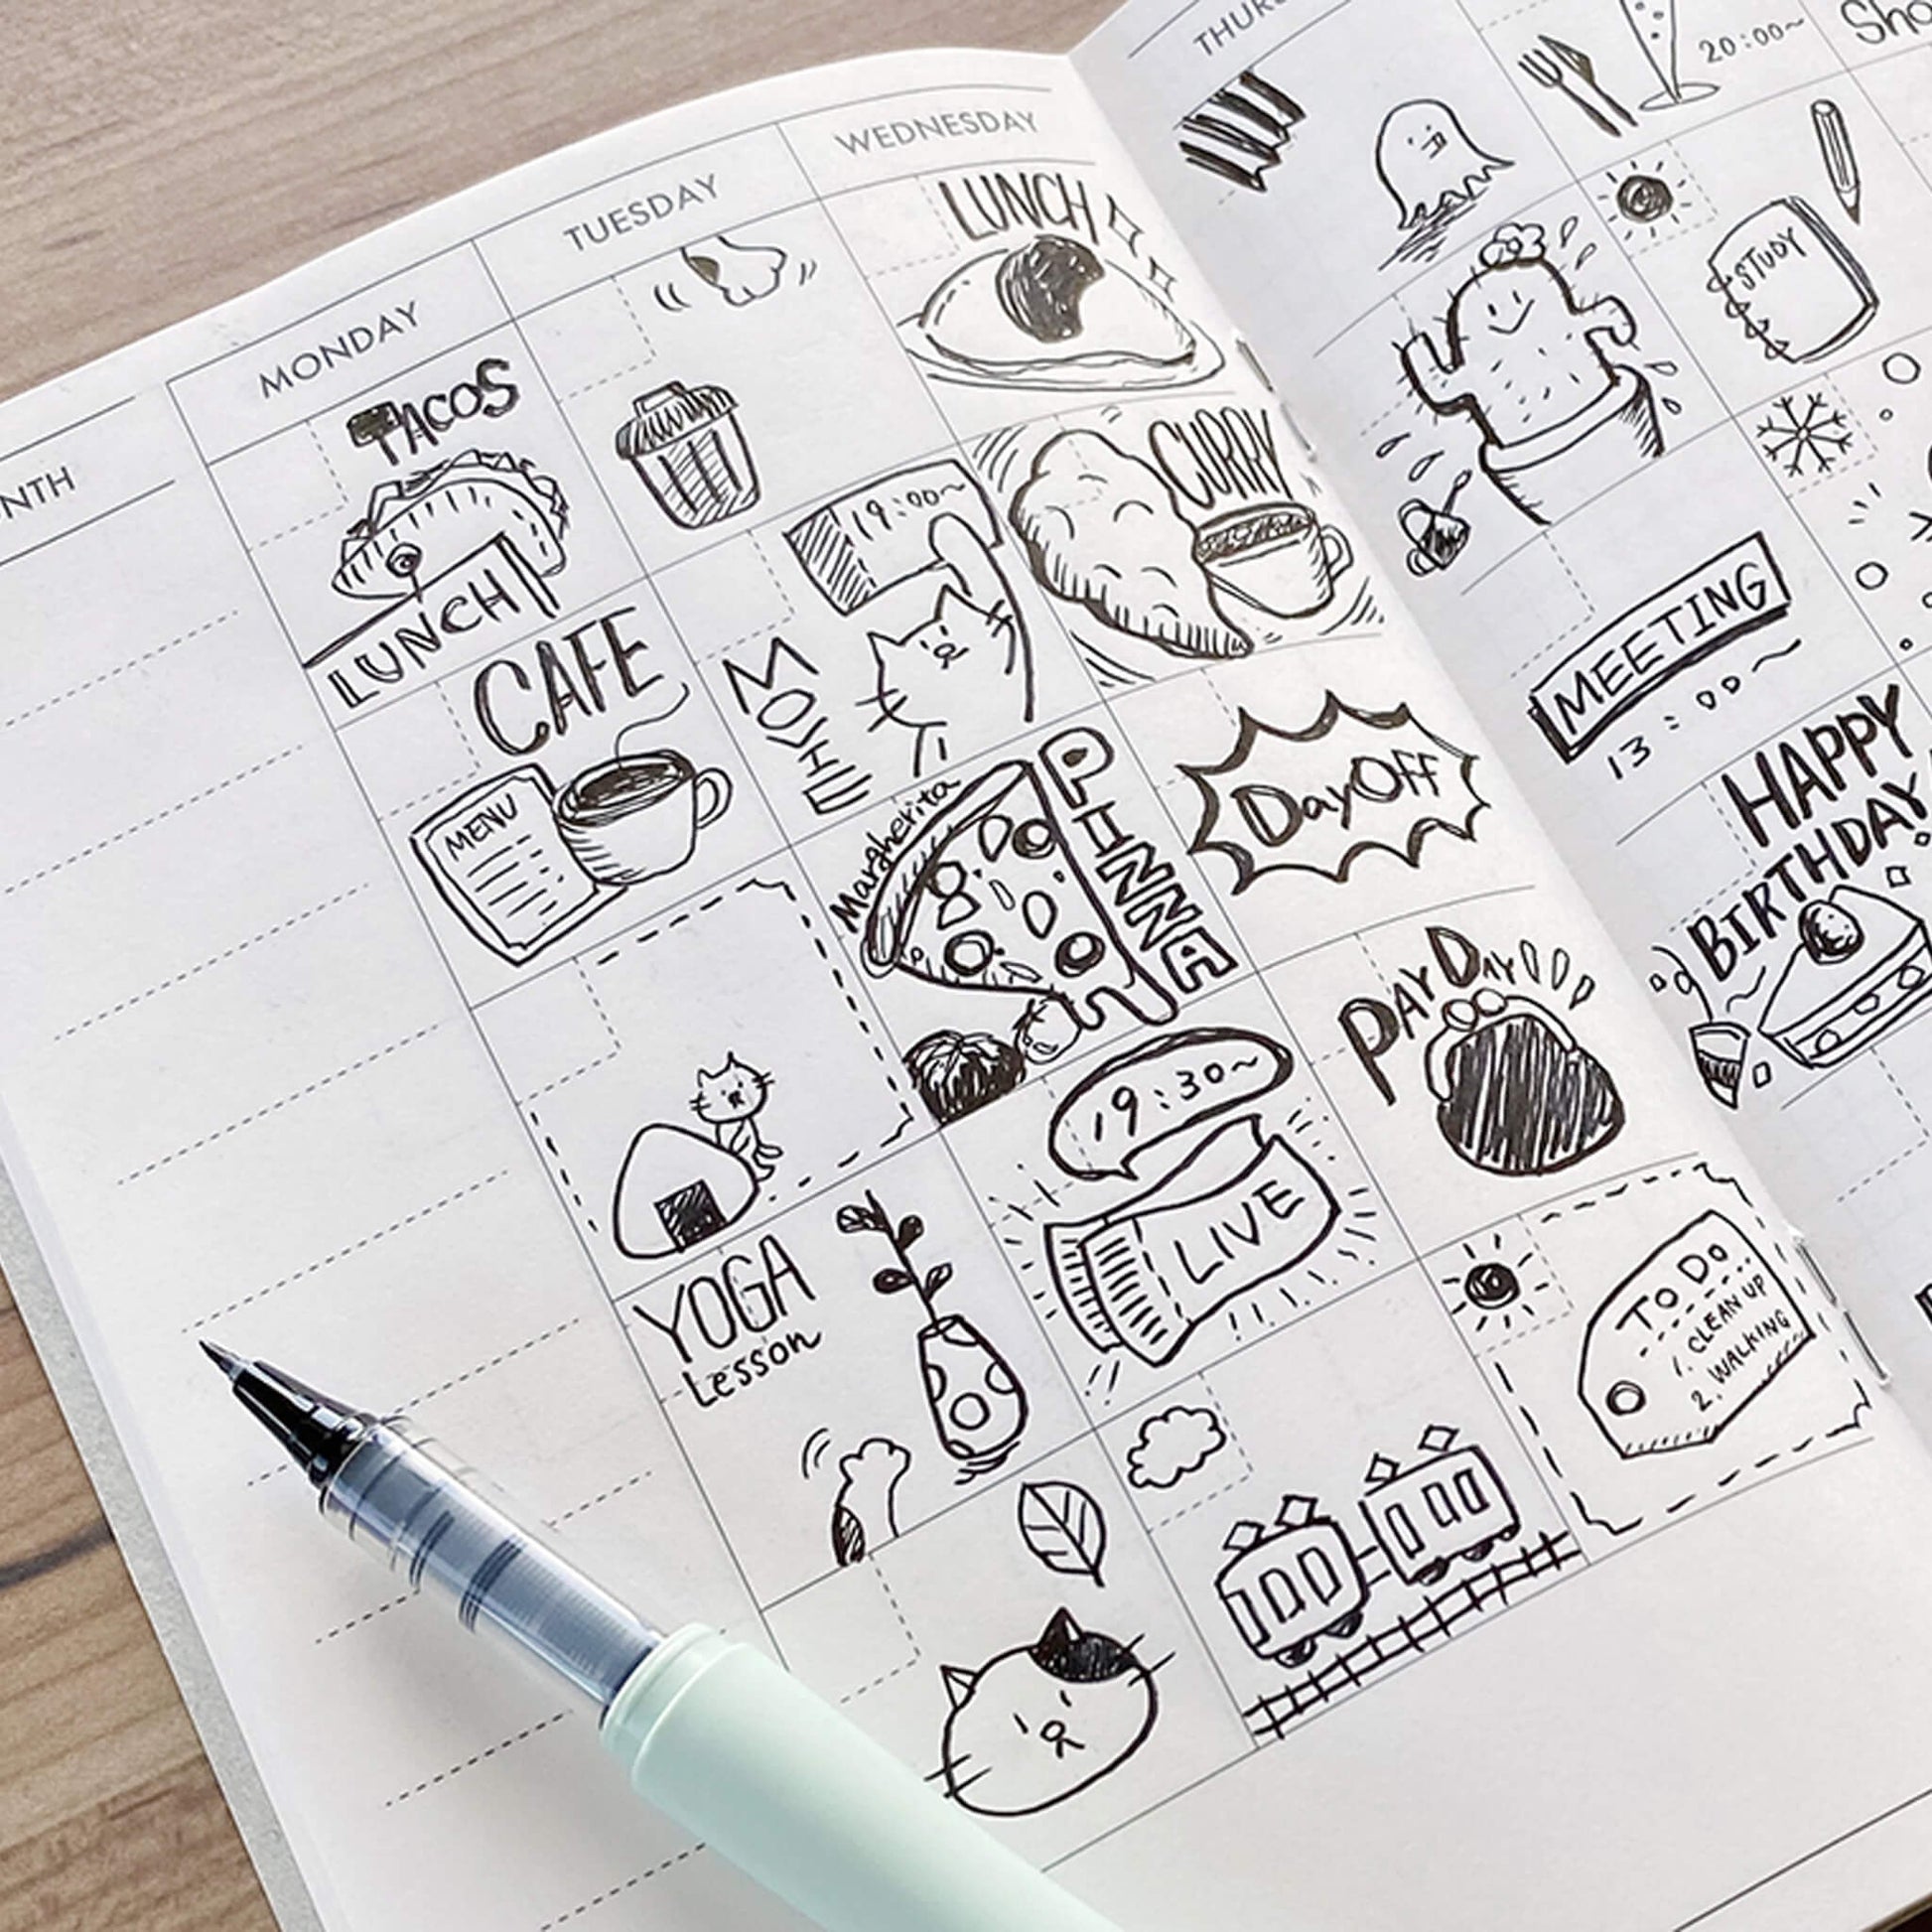 NTH
MONDAY
TUESDAY
WEDNESDAY
THURS
TACOS
LUNCH
LUNCH
20:00~
Sho
STUDY
CAFE
MENU
19:00~
MOVIE
CURRY
MEETING
13:00~
Margherita
PIZZA
DayOff
HAPPY
BIRTHDAY
19:30~
LIVE
PAYDAY
YOGA
Lesson
TO DO
1. CLEAN UP
2. WALKING